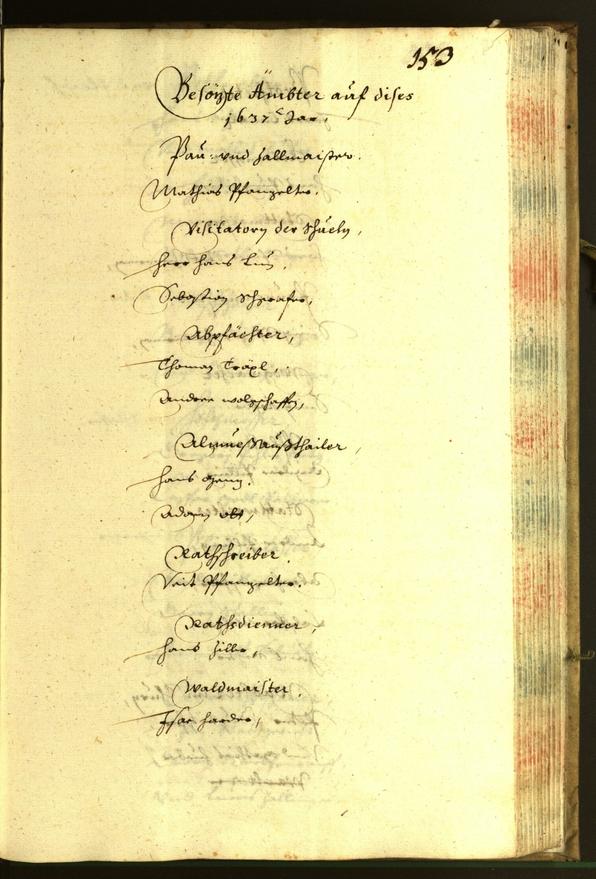 153
Besözte Ämbter auf dises
1637 Jar.
Pau- und Hallmaister.
Mathias Pfanzelter.
Visitatorn der Schueln,
Herr Hans
Sebastian
Abpfächter,
Thoman Träxl,
Andere
Almueßaußthailer,
Hans
Adam
Rathschreiber.
Veit Pfanzelter.
Rathsdienner,
Hans Hiller,
Waldmaister.
Harder,